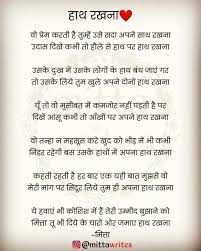 हाथ रखना❤️
वो प्रेम करती है तुम्हें उसे सदा अपने साथ रखना
उदास दिखे कभी तो हौले से हाथ पर हाथ रखना
उसके दुख में उसके लोगों के हाथ बंध जाएं गर
तो उसके लिये तुम खुले अपने दोनों हाथ रखना
यूँ तो वो मुसीबत में कमजोर नहीं पड़ती है पर
दिखें आंसू कभी तो आँखों पर अपने हाथ रखना
वो तन्हा न महसूस करे खुद को भीड़ में भी कभी
निडर रहेगी बस उसके हाथों में अपना हाथ रखना
कहती रहती है हर बार एक यही बात मुझसे वो
मेरी मांग पर सिंदूर लिये तुम ही अपना हाथ रखना
ये हवाएं भी कोशिश में हैं तेरी उम्मीद बुझाने को
मित्ता तू भी दिये के चारों ओर जमाए हाथ रखना
-मित्ता
@mittawrites